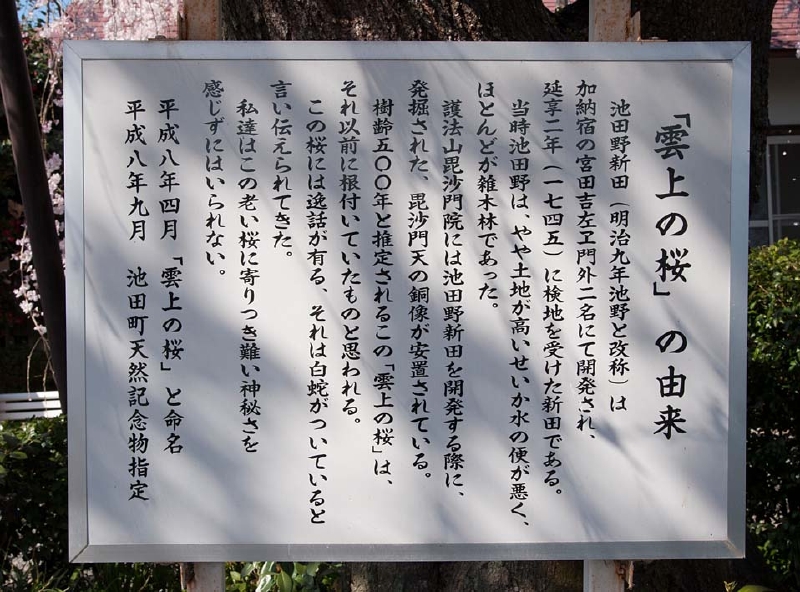 「雲上の桜」の由来
池田野新田（明治九年池野と改称）は
加納宿の宮田吉左エ門外二名にて開発され、
延享二年（一七四五）に検地を受けた新田である。
当時池田野は、やや土地が高いせいか水の便が悪く、
ほとんどが雑木林であった。
護法山毘沙門院には池田野新田を開発する際に、
発掘された、毘沙門天の銅像が安置されている。
樹齢五〇〇年と推定されるこの「雲上の桜」は、
それ以前に根付いていたものと思われる。
この桜には逸話が有る、それは白蛇がついていると
言い伝えられてきた。
私達はこの老い桜に寄りつき難い神秘さを
感じずにはいられない。
平成八年四月「雲上の桜」と命名
平成八年九月　池田町天然記念物指定